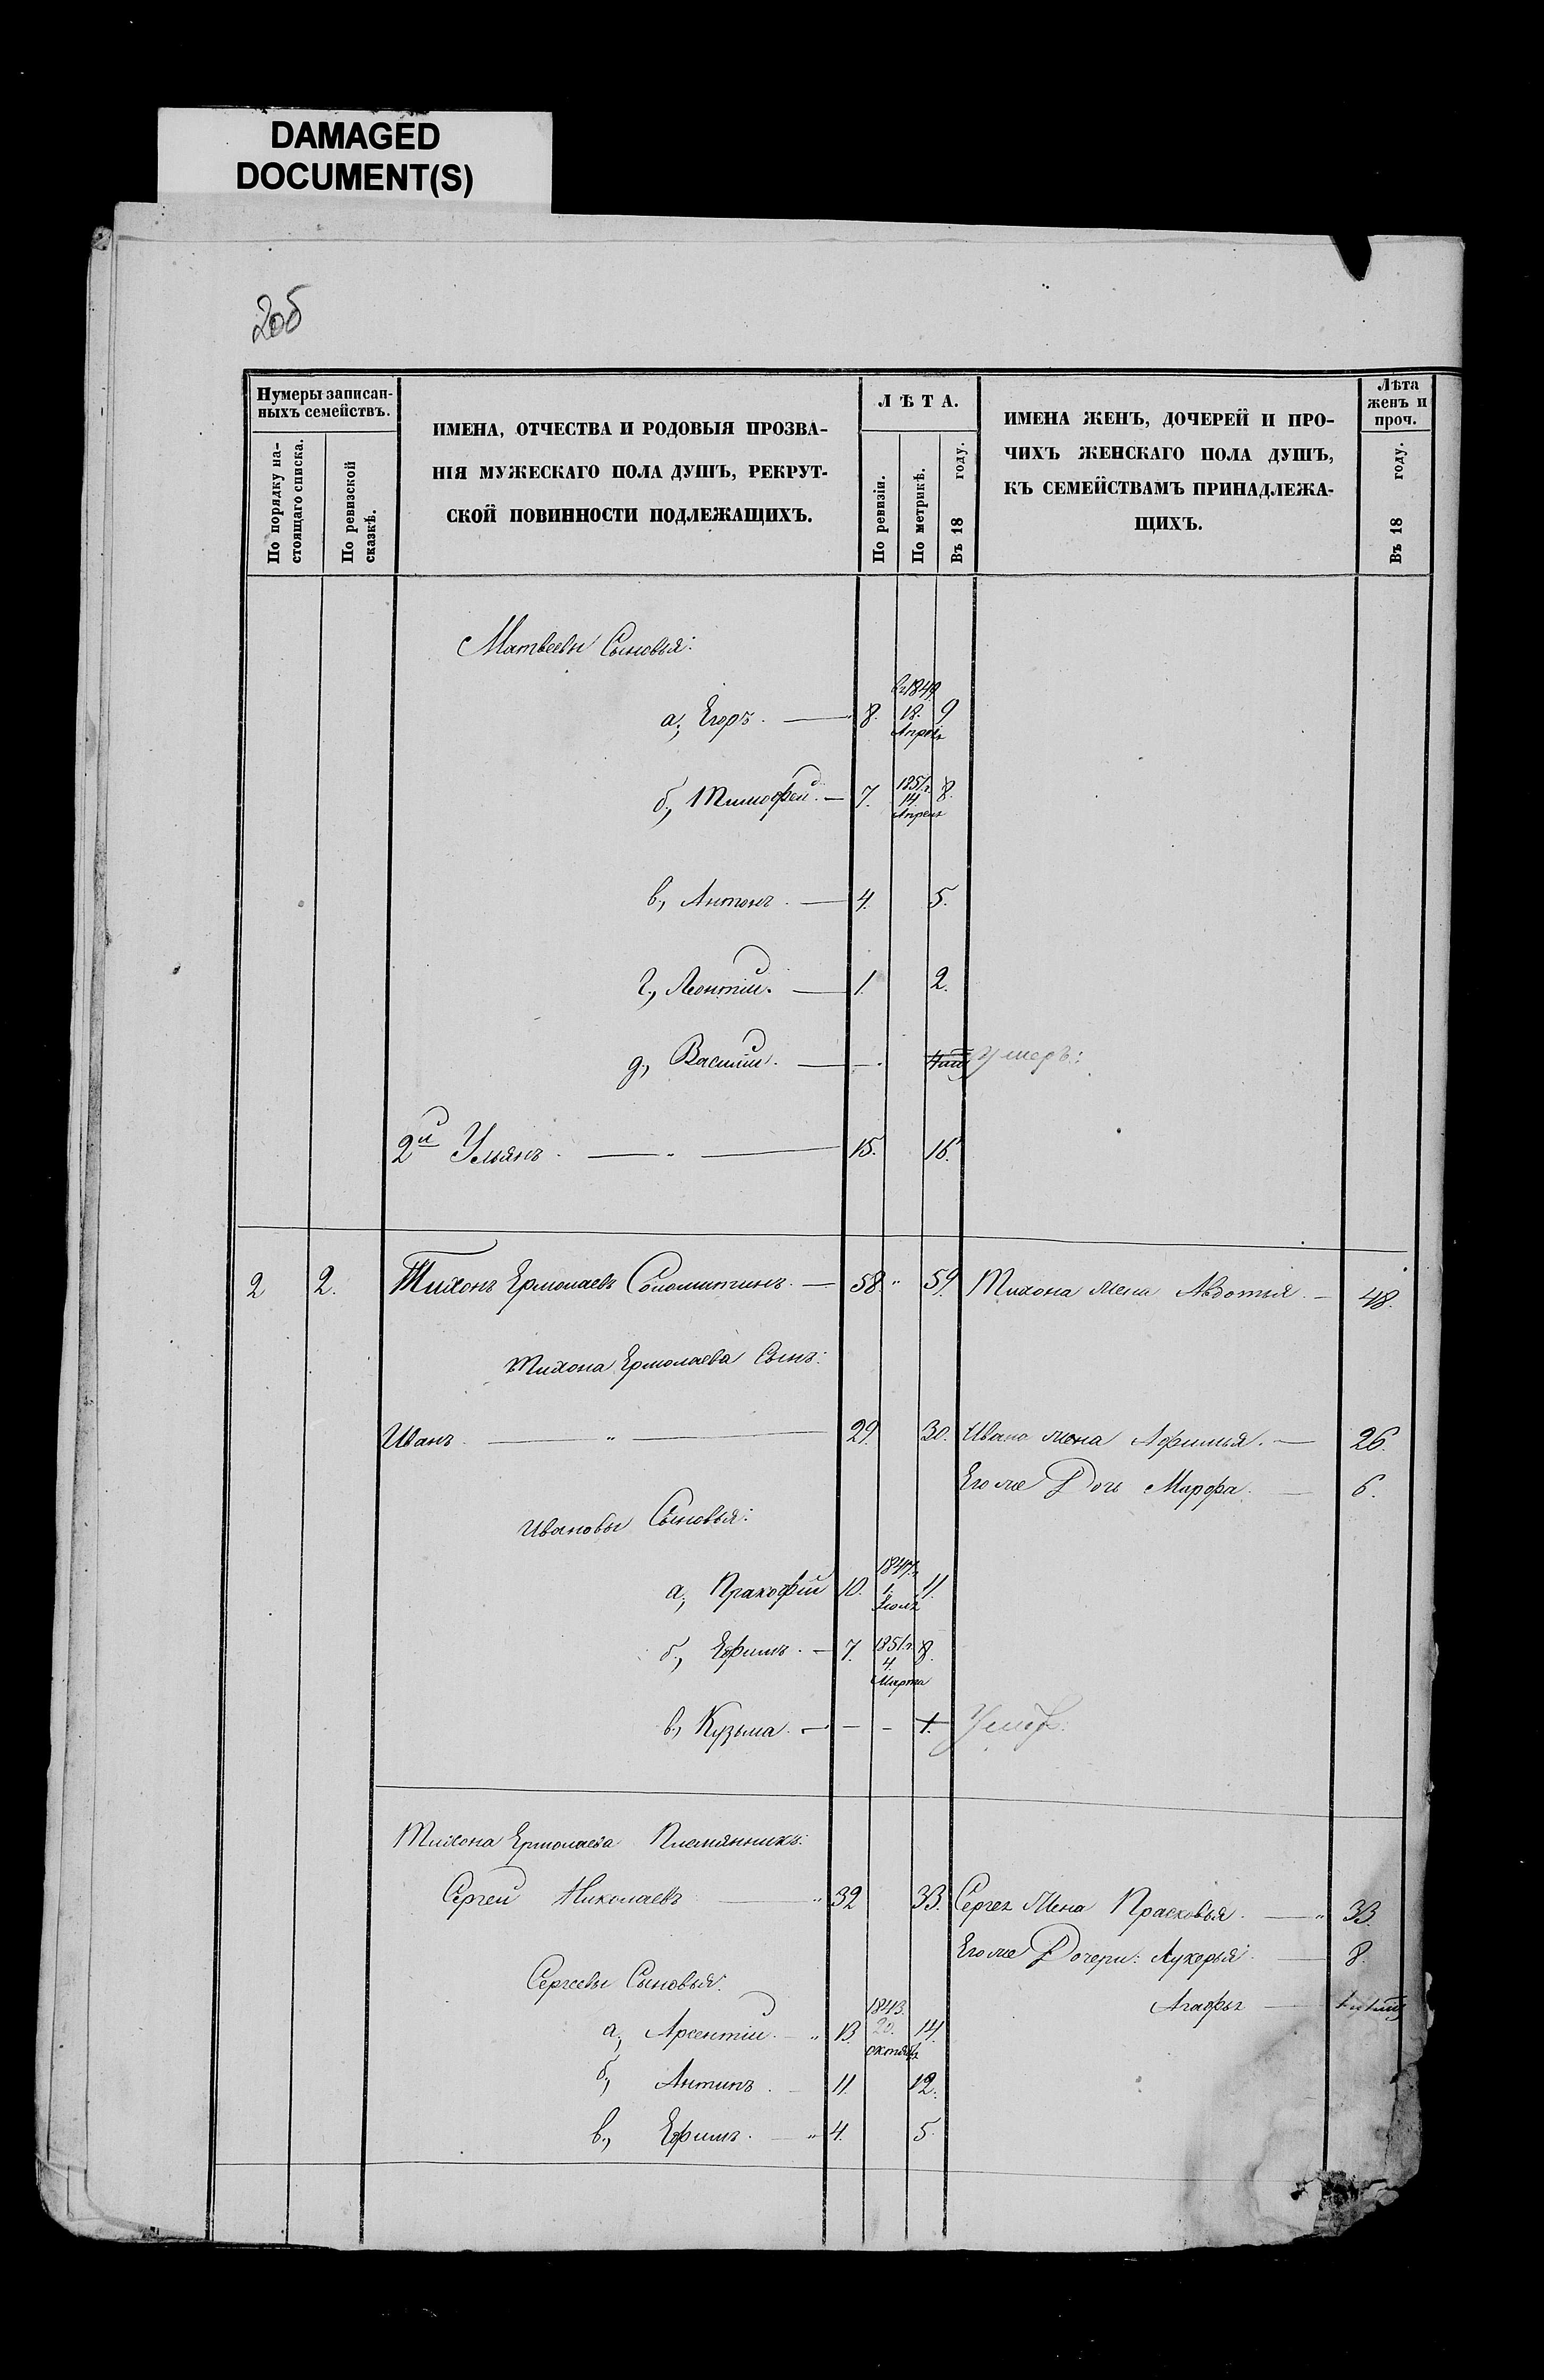 DAMAGED
DOCUMENT(S)
2об
Нумеры записан-
ныхъ семействъ.
По порядку на-
стоящаго списка.
По ревизской
сказкѣ.
ИМЕНА, ОТЧЕСТВА И РОДОВЫЯ ПРОЗВА-
НІЯ МУЖЕСКАГО ПОЛА ДУШЪ, РЕКРУТ-
СКОЙ ПОВИННОСТИ ПОДЛЕЖАЩИХЪ.
ЛѢТА.
По ревизіи.
По метрикѣ.
Въ 18 году.
ИМЕНА ЖЕНЪ, ДОЧЕРЕЙ И ПРО-
ЧИХЪ ЖЕНСКАГО ПОЛА ДУШЪ,
КЪ СЕМЕЙСТВАМЪ ПРИНАДЛЕЖА-
ЩИХЪ.
Лѣта
женъ и
проч.
Въ 18 году.
Матвеевы Сыновья:
1849
а, Егоръ. 8. 18. 9
Апрѣля
1851г.
б, Тимофей. 7. 14 8.
Апреля
в, Антонъ. 4. 5.
г, Леонтій. 1. 2.
д, Василій. Умеръ:
2й Ульянъ. 15. 16.
2 2. Тихонъ Ермолаевъ Соломатинъ. 58. 59. Тихона жена Авдотья. 48.
Тихона Ермолаева Сынъ:
Иванъ. 29. 30. Ивана жена Афимья. 26.
Его же Дочь Марфа. 6.
Ивановы Сыновья:
1847г.
а, Пракофій 10. 1. 11.
Июля
б, Ефимъ. 7. 1851.г. 8.
4.
Марта
в, Кузьма. 1. Умеръ.
Тихона Ермолаева Племянникъ:
Сергей Николаевъ 32 33. Сергея Жена Прасковья. 33.
Его же Дочери: Лукерья. 8.
Сергеевы Сыновья: Агафья
1843.
а, Арсентій. 13. 20. 14.
октября
б, Антипъ. 11. 12.
в, Ефимъ. 4. 5.